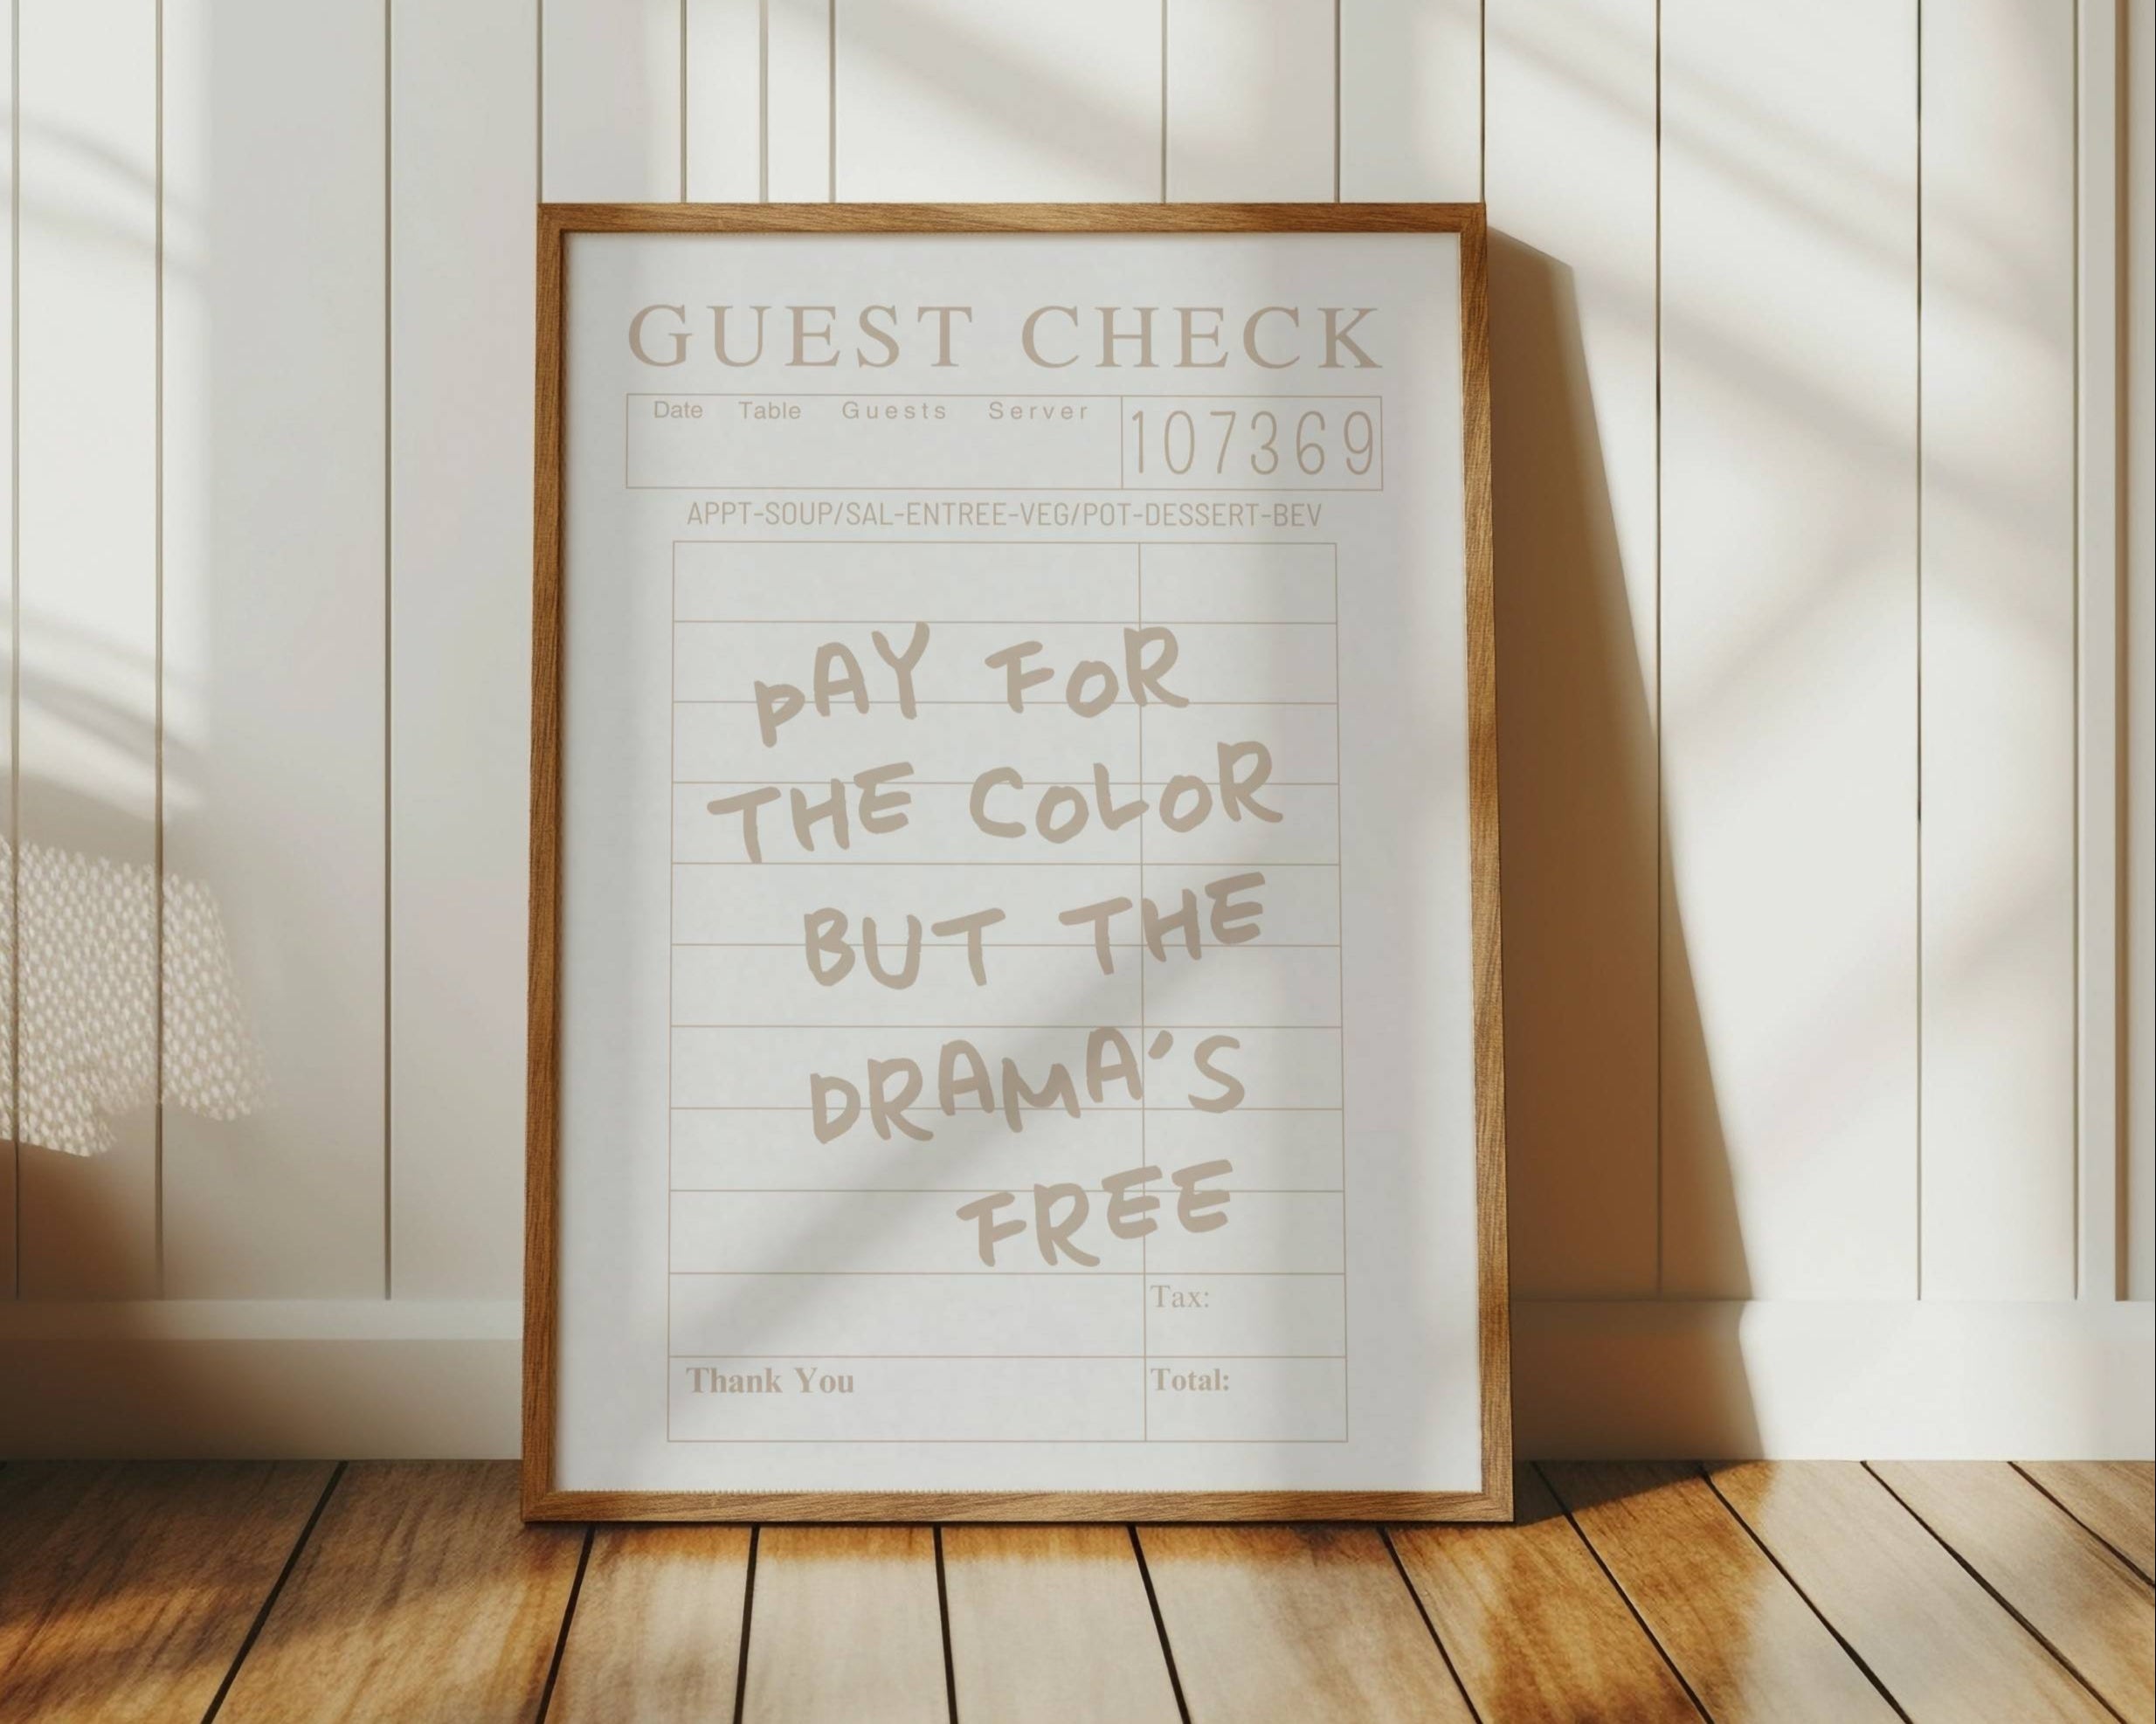 GUEST CHECK
Date Table Guests Server 107369
APPT-SOUP/SAL-ENTREE-VEG/POT-DESSERT-BEV
PAY FOR
THE COLOR
BUT THE
DRAMA'S
FREE
Tax:
Thank You Total: